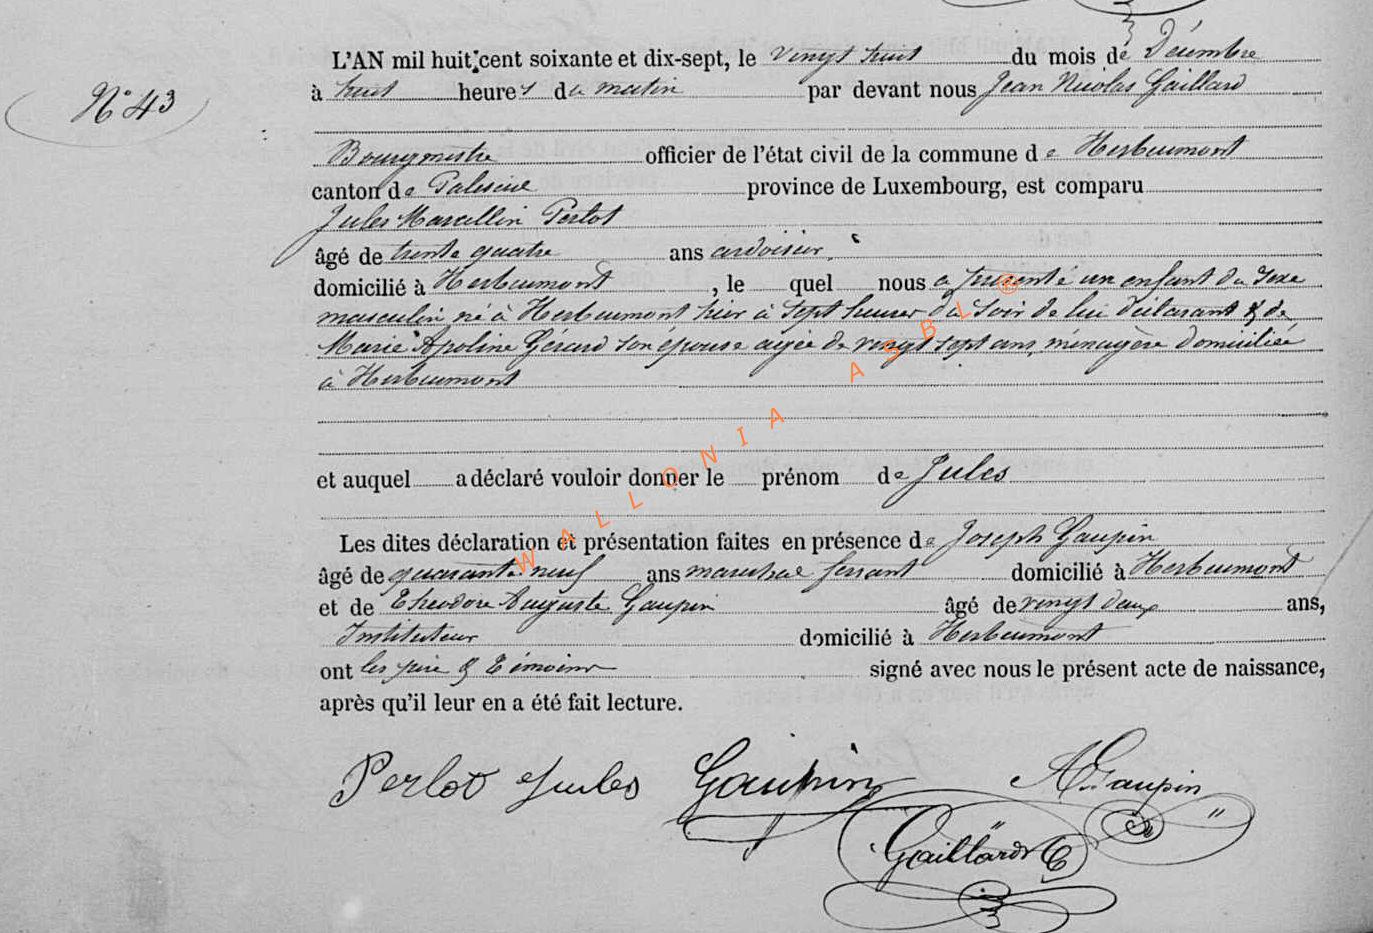 L'AN mil huit cent soixante et dix-sept, le vingt huit du mois de Décembre
N° 43
à huit heures du matin par devant nous Jean Nicolas Gaillard
Bourgmestre officier de l'état civil de la commune de Herbeumont
canton de Paliseul province de Luxembourg, est comparu
Jules Marcellin Perlot
âgé de trente quatre ans ardoisier,
domicilié à Herbeumont, le quel nous a présenté un enfant du sexe
masculin né à Herbeumont hier à sept heures du soir de lui déclarant & de
Marie Apoline Gérard son épouse agée de vingt sept ans, ménagère domiciliée
à Herbeumont
et auquel a déclaré vouloir donner le prénom de Jules
Les dites déclaration et présentation faites en présence de Joseph Gaupin
âgé de quarante neuf ans marechal ferrant domicilié à Herbeumont
et de Théodore Auguste Gaupin âgé de vingt deux ans,
Instituteur domicilié à Herbeumont
ont les père & Témoins signé avec nous le présent acte de naissance,
après qu'il leur en a été fait lecture.
Perlot Jules Gaupin A Gaupin
Gaillard
WALLONIA ASBL ®